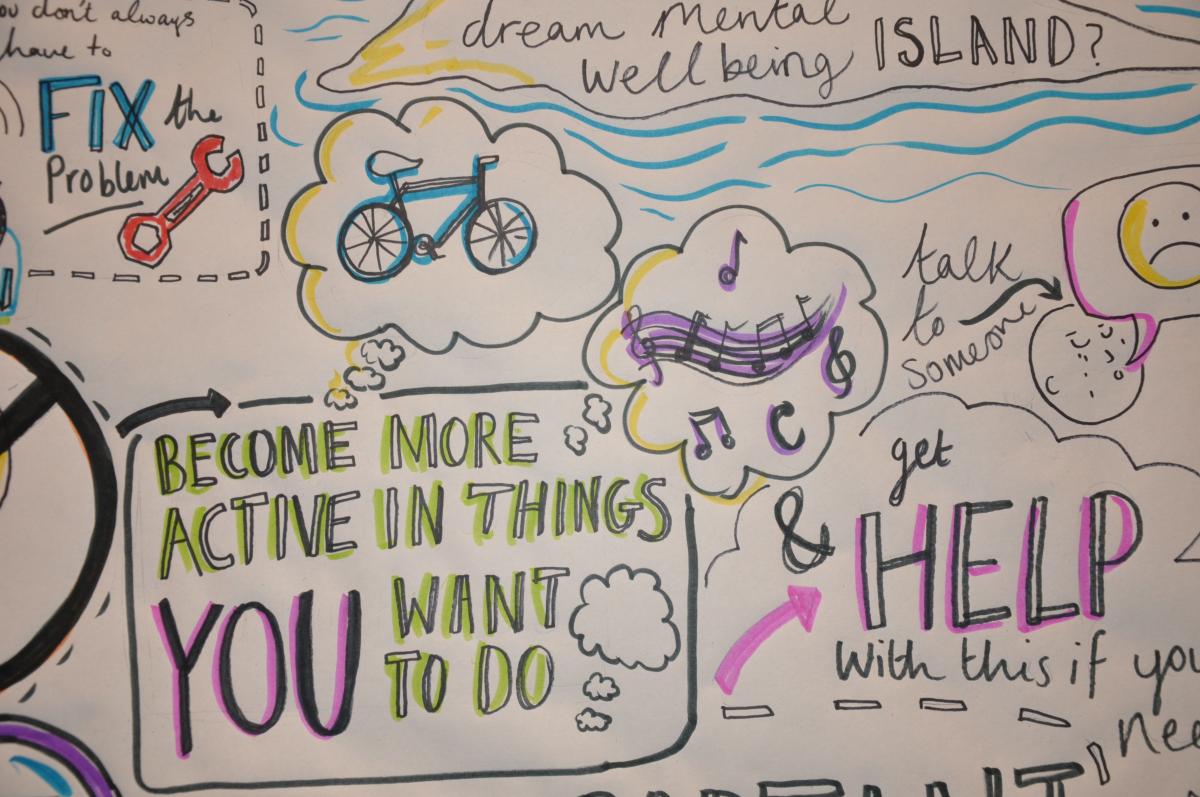 you don't always
have to
FIX the
Problem
dream mental
well being ISLAND?
talk
to
someone
BECOME MORE
ACTIVE IN THINGS
YOU WANT
TO DO
& get
HELP
with this if you
nee